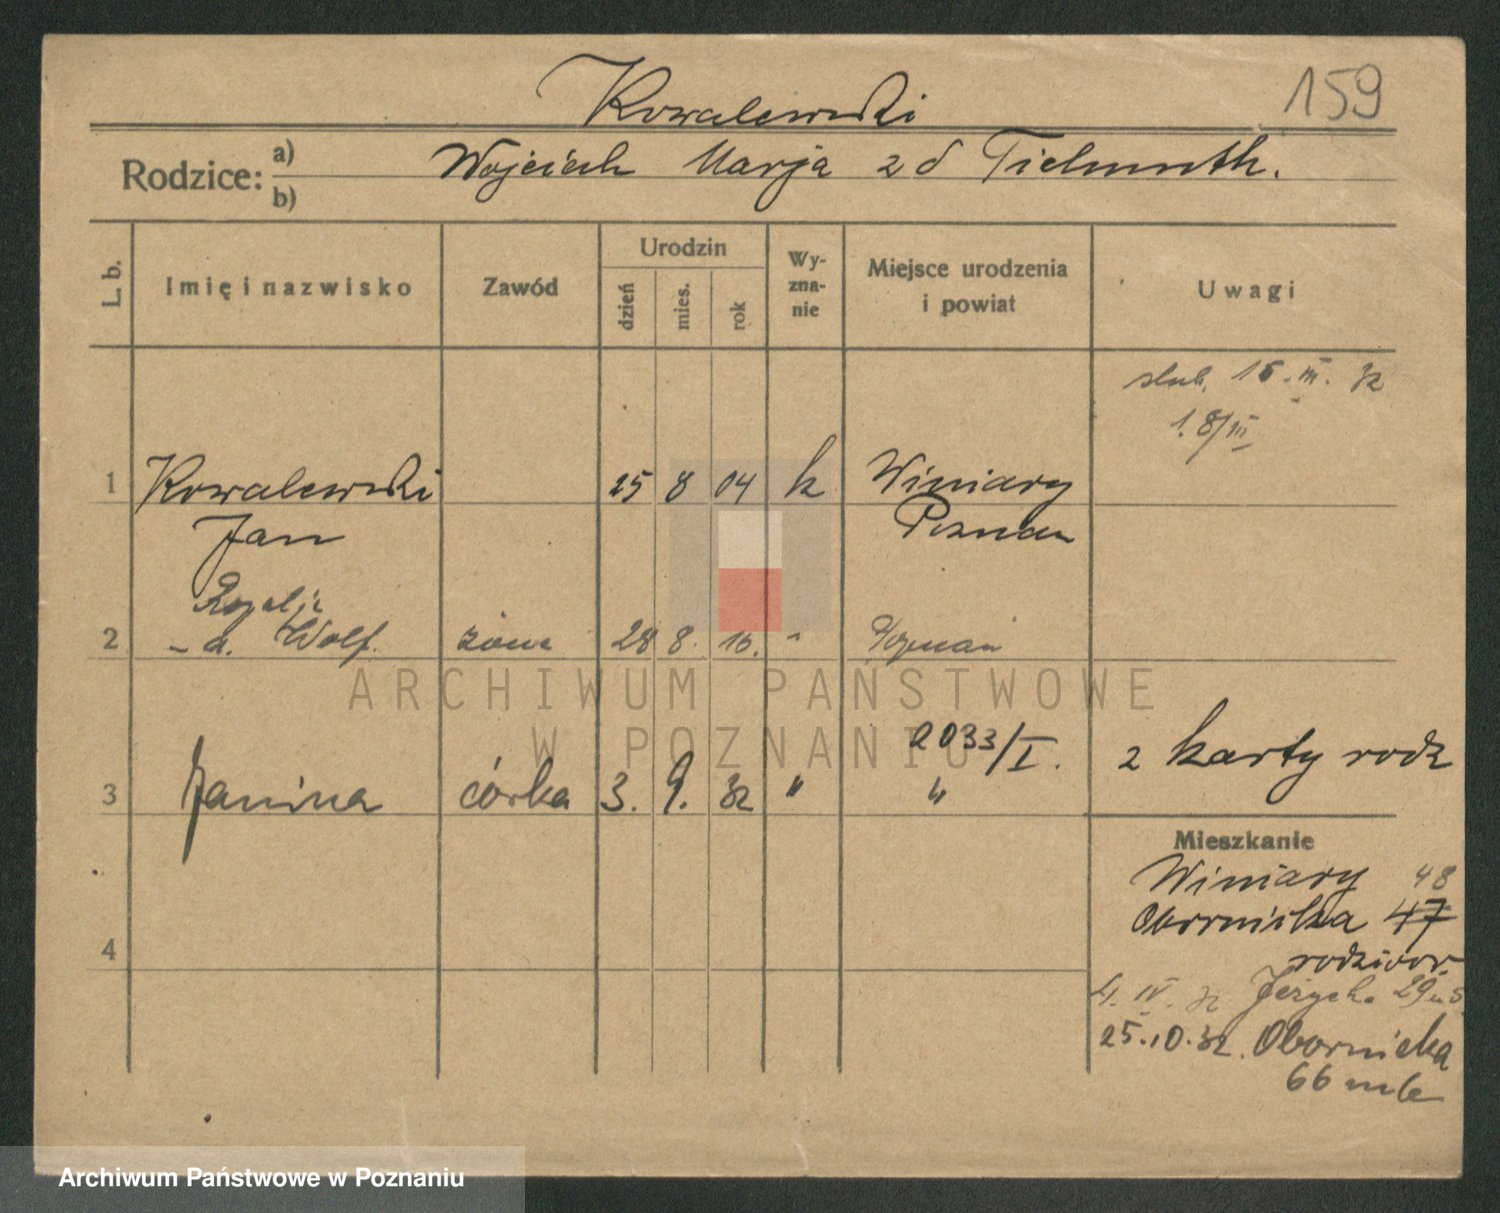 Kowalewski
159
Rodzice: a) b)
Wojciech Marja z d Tielmuth.
L. b.
Imię i nazwisko
Zawód
Urodzin
dzień
mies.
rok
Wy-
zna-
nie
Miejsce urodzenia
i powiat
Uwagi
slub. 15. III. 32
1.8/III
1 Kowalewski 25 8 04 k Winiary
Jan Poznan
Rozalja
2 - d. Wolf. żona 28 8. 16. " Poznań
2033/I. z karty rodz
3 Janina córka 3. 9. 32 " "
Mieszkanie
Winiary 48
Obornicka 47
4
rodzicor.
4. IV. 32 Jeżycka 29
25.10.32. Obornicka
66
ARCHIWUM PAŃSTWOWE
W POZNANIU
Archiwum Państwowe w Poznaniu